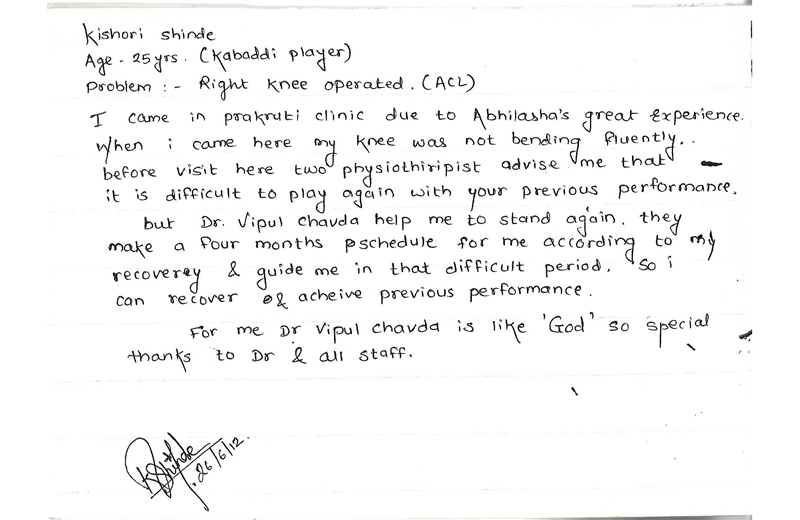 Kishori Shinde
Age - 25 yrs. (Kabaddi player)
Problem :- Right knee operated. (ACL)
I came in prakruti clinic due to Abhilasha's great Experience.
When i came here my knee was not bending fluently..
before visit here two physiothiripist advise me that
it is difficult to play again with your previous performance.
but Dr. Vipul Chavda help me to stand again. they
make a four months pschedule for me according to my
recoverey & guide me in that difficult period. So i
can recover & acheive previous performance.
For me Dr Vipul Chavda is like 'God' so special
thanks to Dr & all staff.
KShinde
26/6/12.